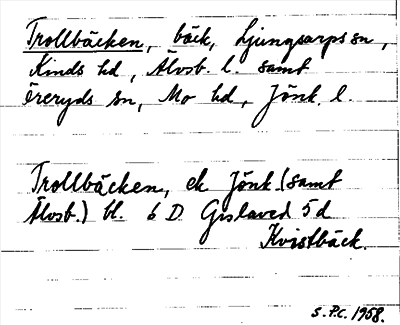 Trollbäcken, bäck, Ljungsarps sn,
Kinds hd, Älvsb. l. samt
Öreryds sn, Mo hd, Jönk. l.
Trollbäcken, ek Jönk. (samt
Älvsb.) bl. 6 D Gislaved 5d
Kvistbäck.
S.P.C. 1958.